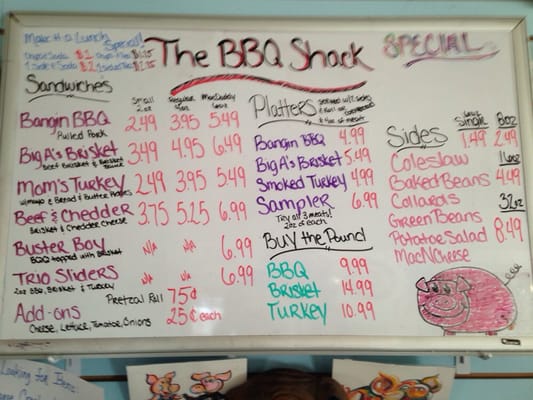 Make it a Lunch Special!
The BBQ Shack
SPECIAL
Sandwiches
Small 2oz
Regular 4oz
MacDaddy 6oz
Bangin BBQ 2.49 3.95 5.49
Pulled Pork
Big A's Brisket 3.49 4.95 6.49
Mom's Turkey 2.49 3.95 5.49
w/mayo & Bread & Butter Pickles
Beef & Cheddar 3.75 5.25 6.99
Brisket & Cheddar Cheese
Buster Boy N/A N/A 6.99
BBQ topped with Brisket
Trio Sliders N/A N/A 6.99
2oz BBQ, Brisket & Turkey
Pretzel Roll 75¢
Add-ons 25¢ each
Cheese, Lettuce, Tomatoe, Onions
Platters
Bangin BBQ 4.99
Big A's Brisket 5.49
Smoked Turkey 4.99
Sampler 6.99
Try all 3 meats!
2oz of each
Buy the Pound
BBQ 9.99
Brisket 14.99
Turkey 10.99
Sides
Single 8oz
1.49 2.49
Coleslaw 16oz
Baked Beans 4.49
Collards 32oz
Green Beans 8.49
Potatoe Salad
Mac N Cheese